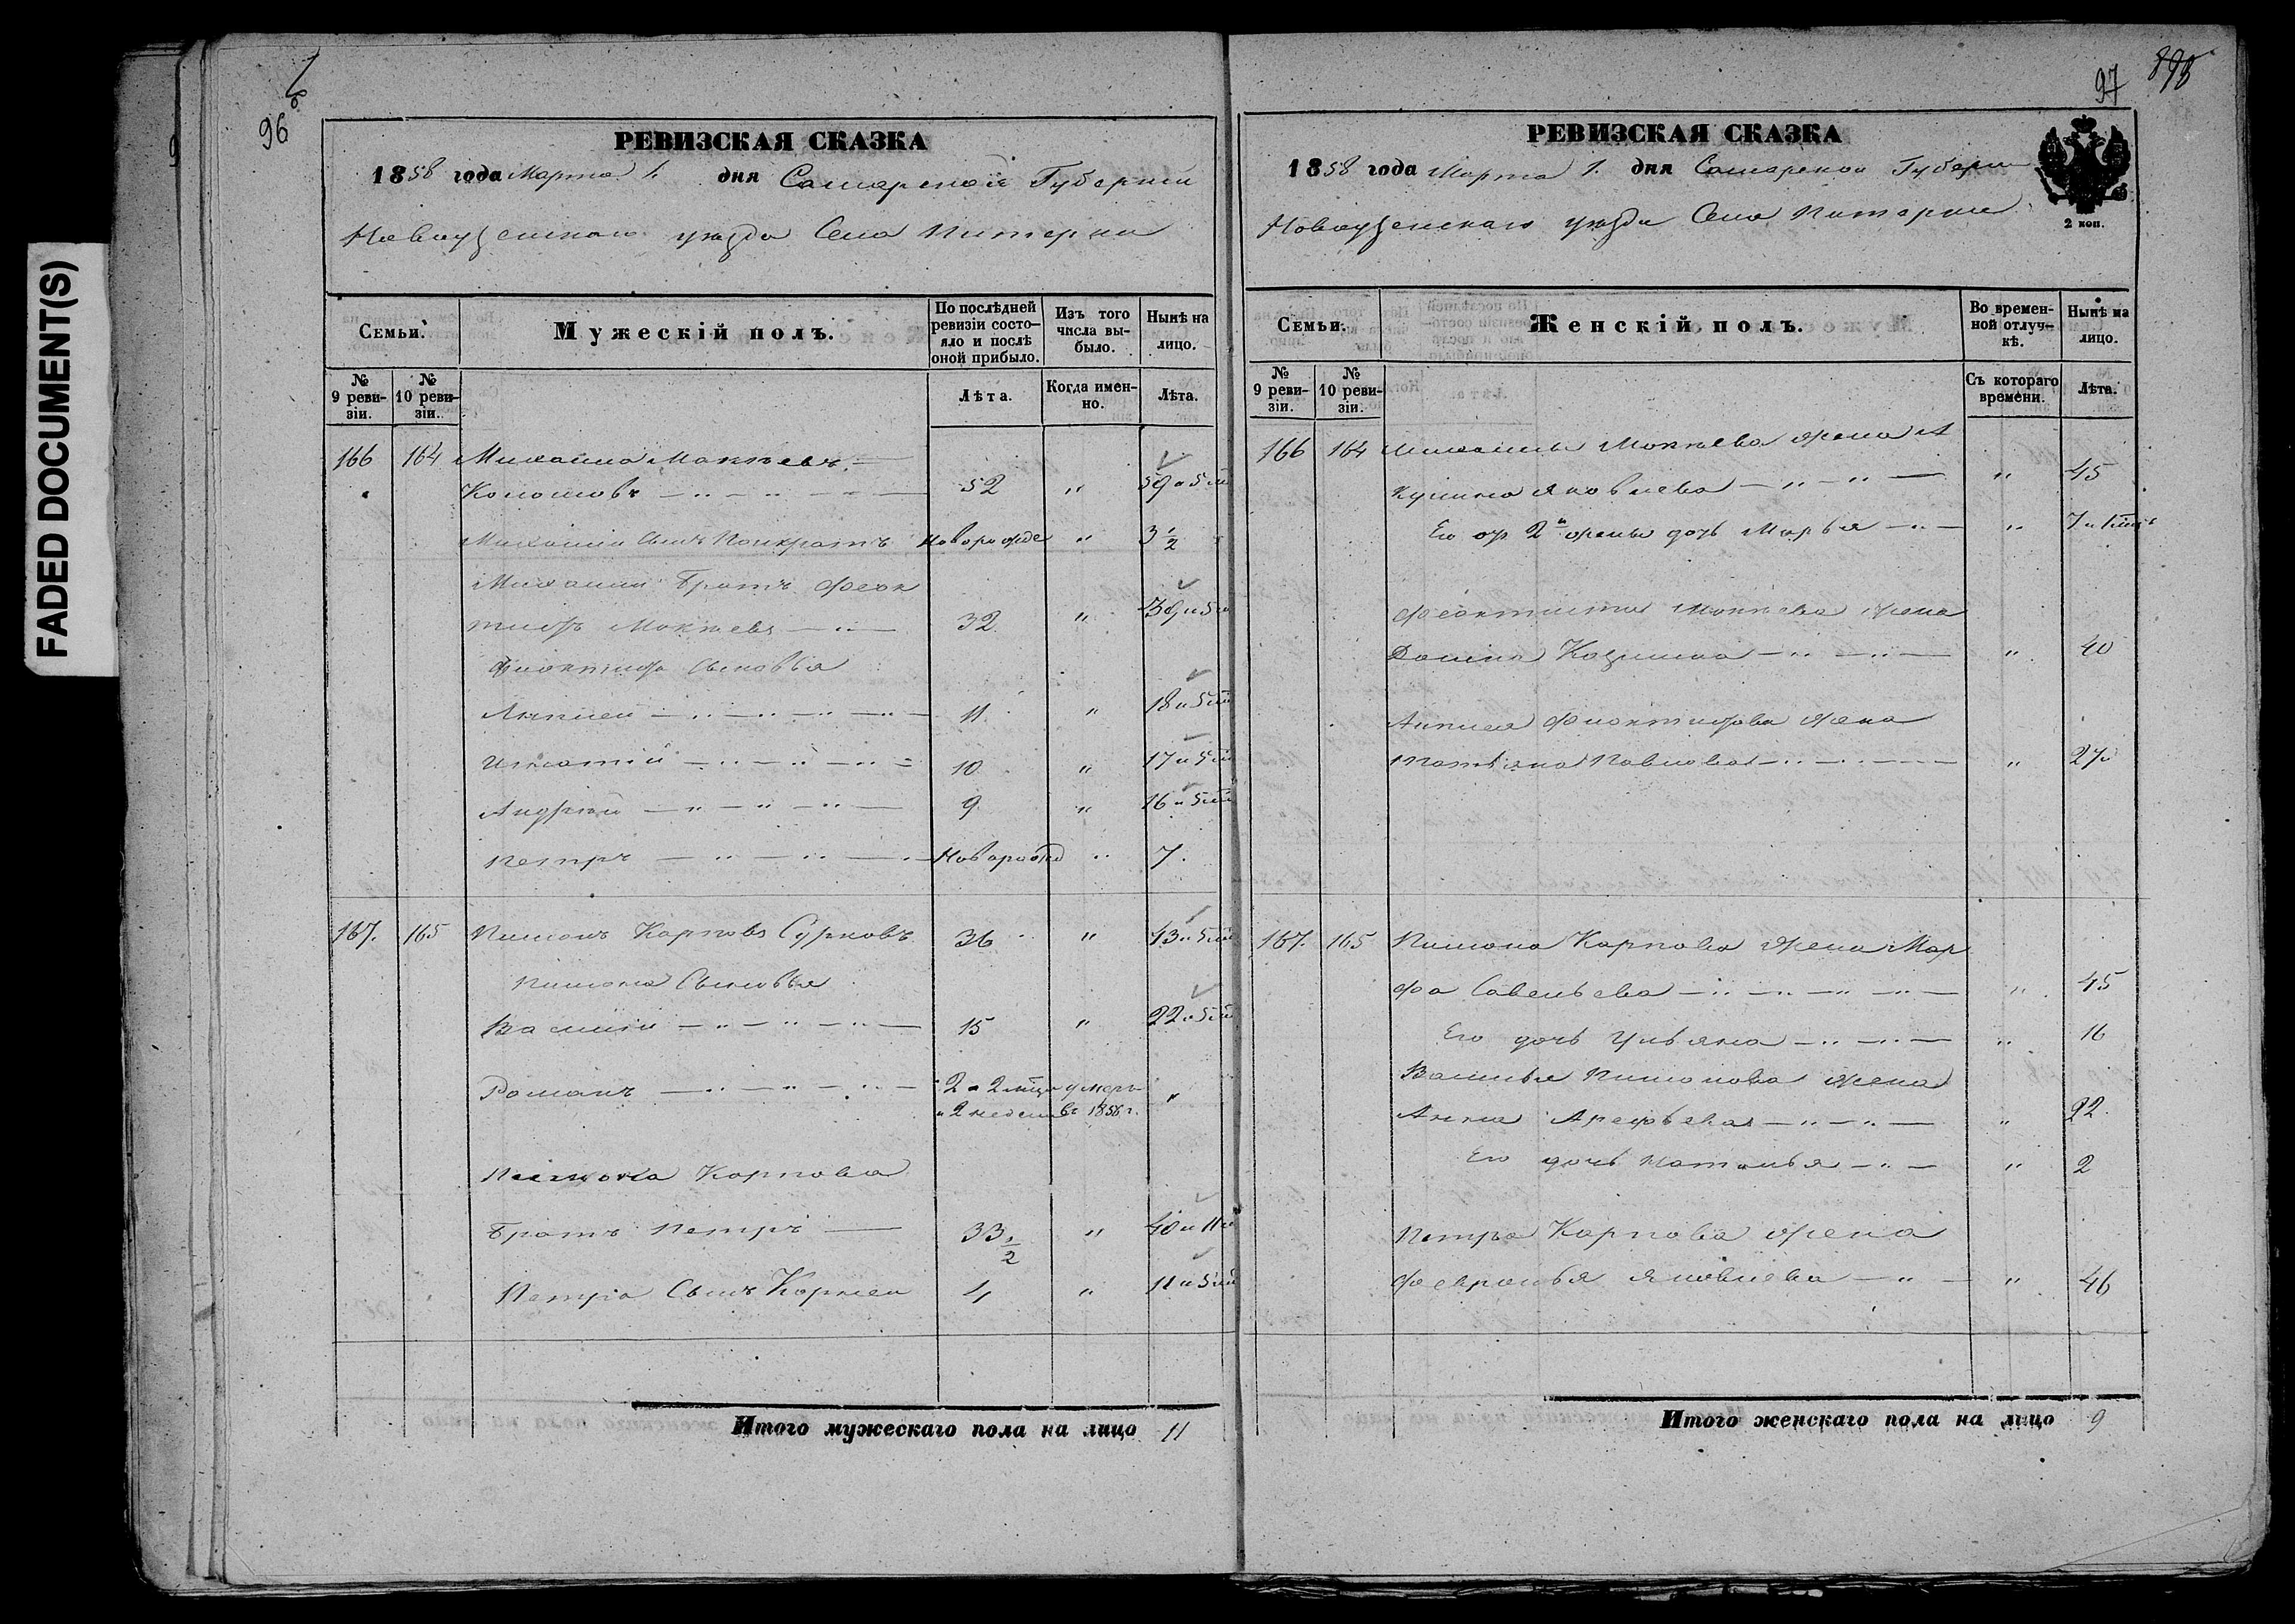 FADED DOCUMENT(S)
96
РЕВИЗСКАЯ СКАЗКА
1858 года Марта 1. дня Самарской Губерніи
Новоузенскаго уѣзда Села Питерки
Семьи. Мужескій полъ. По послѣдней ревизіи состояло и послѣ оной прибыло. Изъ того числа выбыло. Нынѣ на лицо.
№ 9 ревизіи. № 10 ревизіи. Лѣта. Когда именно. Лѣта.
166 164 Михайла Мокѣевъ
52 " 59 и 5 м
Михайлы Сынъ Панкратъ Новорожде " 3 1/2
Михайлы Братъ Феок
тистъ Мокѣевъ 32. " 39 и 5 м
Фиоктиста Сыновья
11 " 18 и 5 м
Игнатій 10. " 17 и 5 м
Андрей 9. " 16 и 5 м
Петръ Новорожд " 7.
167. 165 Пимонъ Карповъ Сурковъ 36 " 43 и 5 м
Пимона Сыновья
Василій 15 " 22 и 5 м
Романъ 2 и 2 мѣц умеръ "
и 2 недели въ 1858 г.
Пимона Карпова
Братъ Петръ 33 1/2 " 40 и 11 м
Петра Сынъ Корнеи 4 " 11 и 5 м
Итого мужескаго пола на лицо 11
97
РЕВИЗСКАЯ СКАЗКА
1858 года Марта 1. дня Самарской Губерни
Новоузенскаго уѣзда Села Питерки
2 коп.
Семьи. Женскій полъ. Во временной отлучкѣ. Нынѣ на лицо.
№ 9 ревизіи. № 10 ревизіи. Съ котораго времени. Лѣта.
166 164 Михайлы Мокѣева жена А
кулина Яковлева " 45
Его от 2й жены дочь Марья "
Феоктиста Мокѣева жена
Козмина " 40
Фиоктистова жена
Татьяна Павлова " 27
167. 165 Пимона Карпова жена Мар
фа Савельева " 45
Его дочь Ульяна " 16
Василья Пимонова жена
Анна Арефьева " 22.
Его дочь Наталья " 2
Петра Карпова жена
Февронья Яковлева " 46
Итого женскаго пола на лицо 9